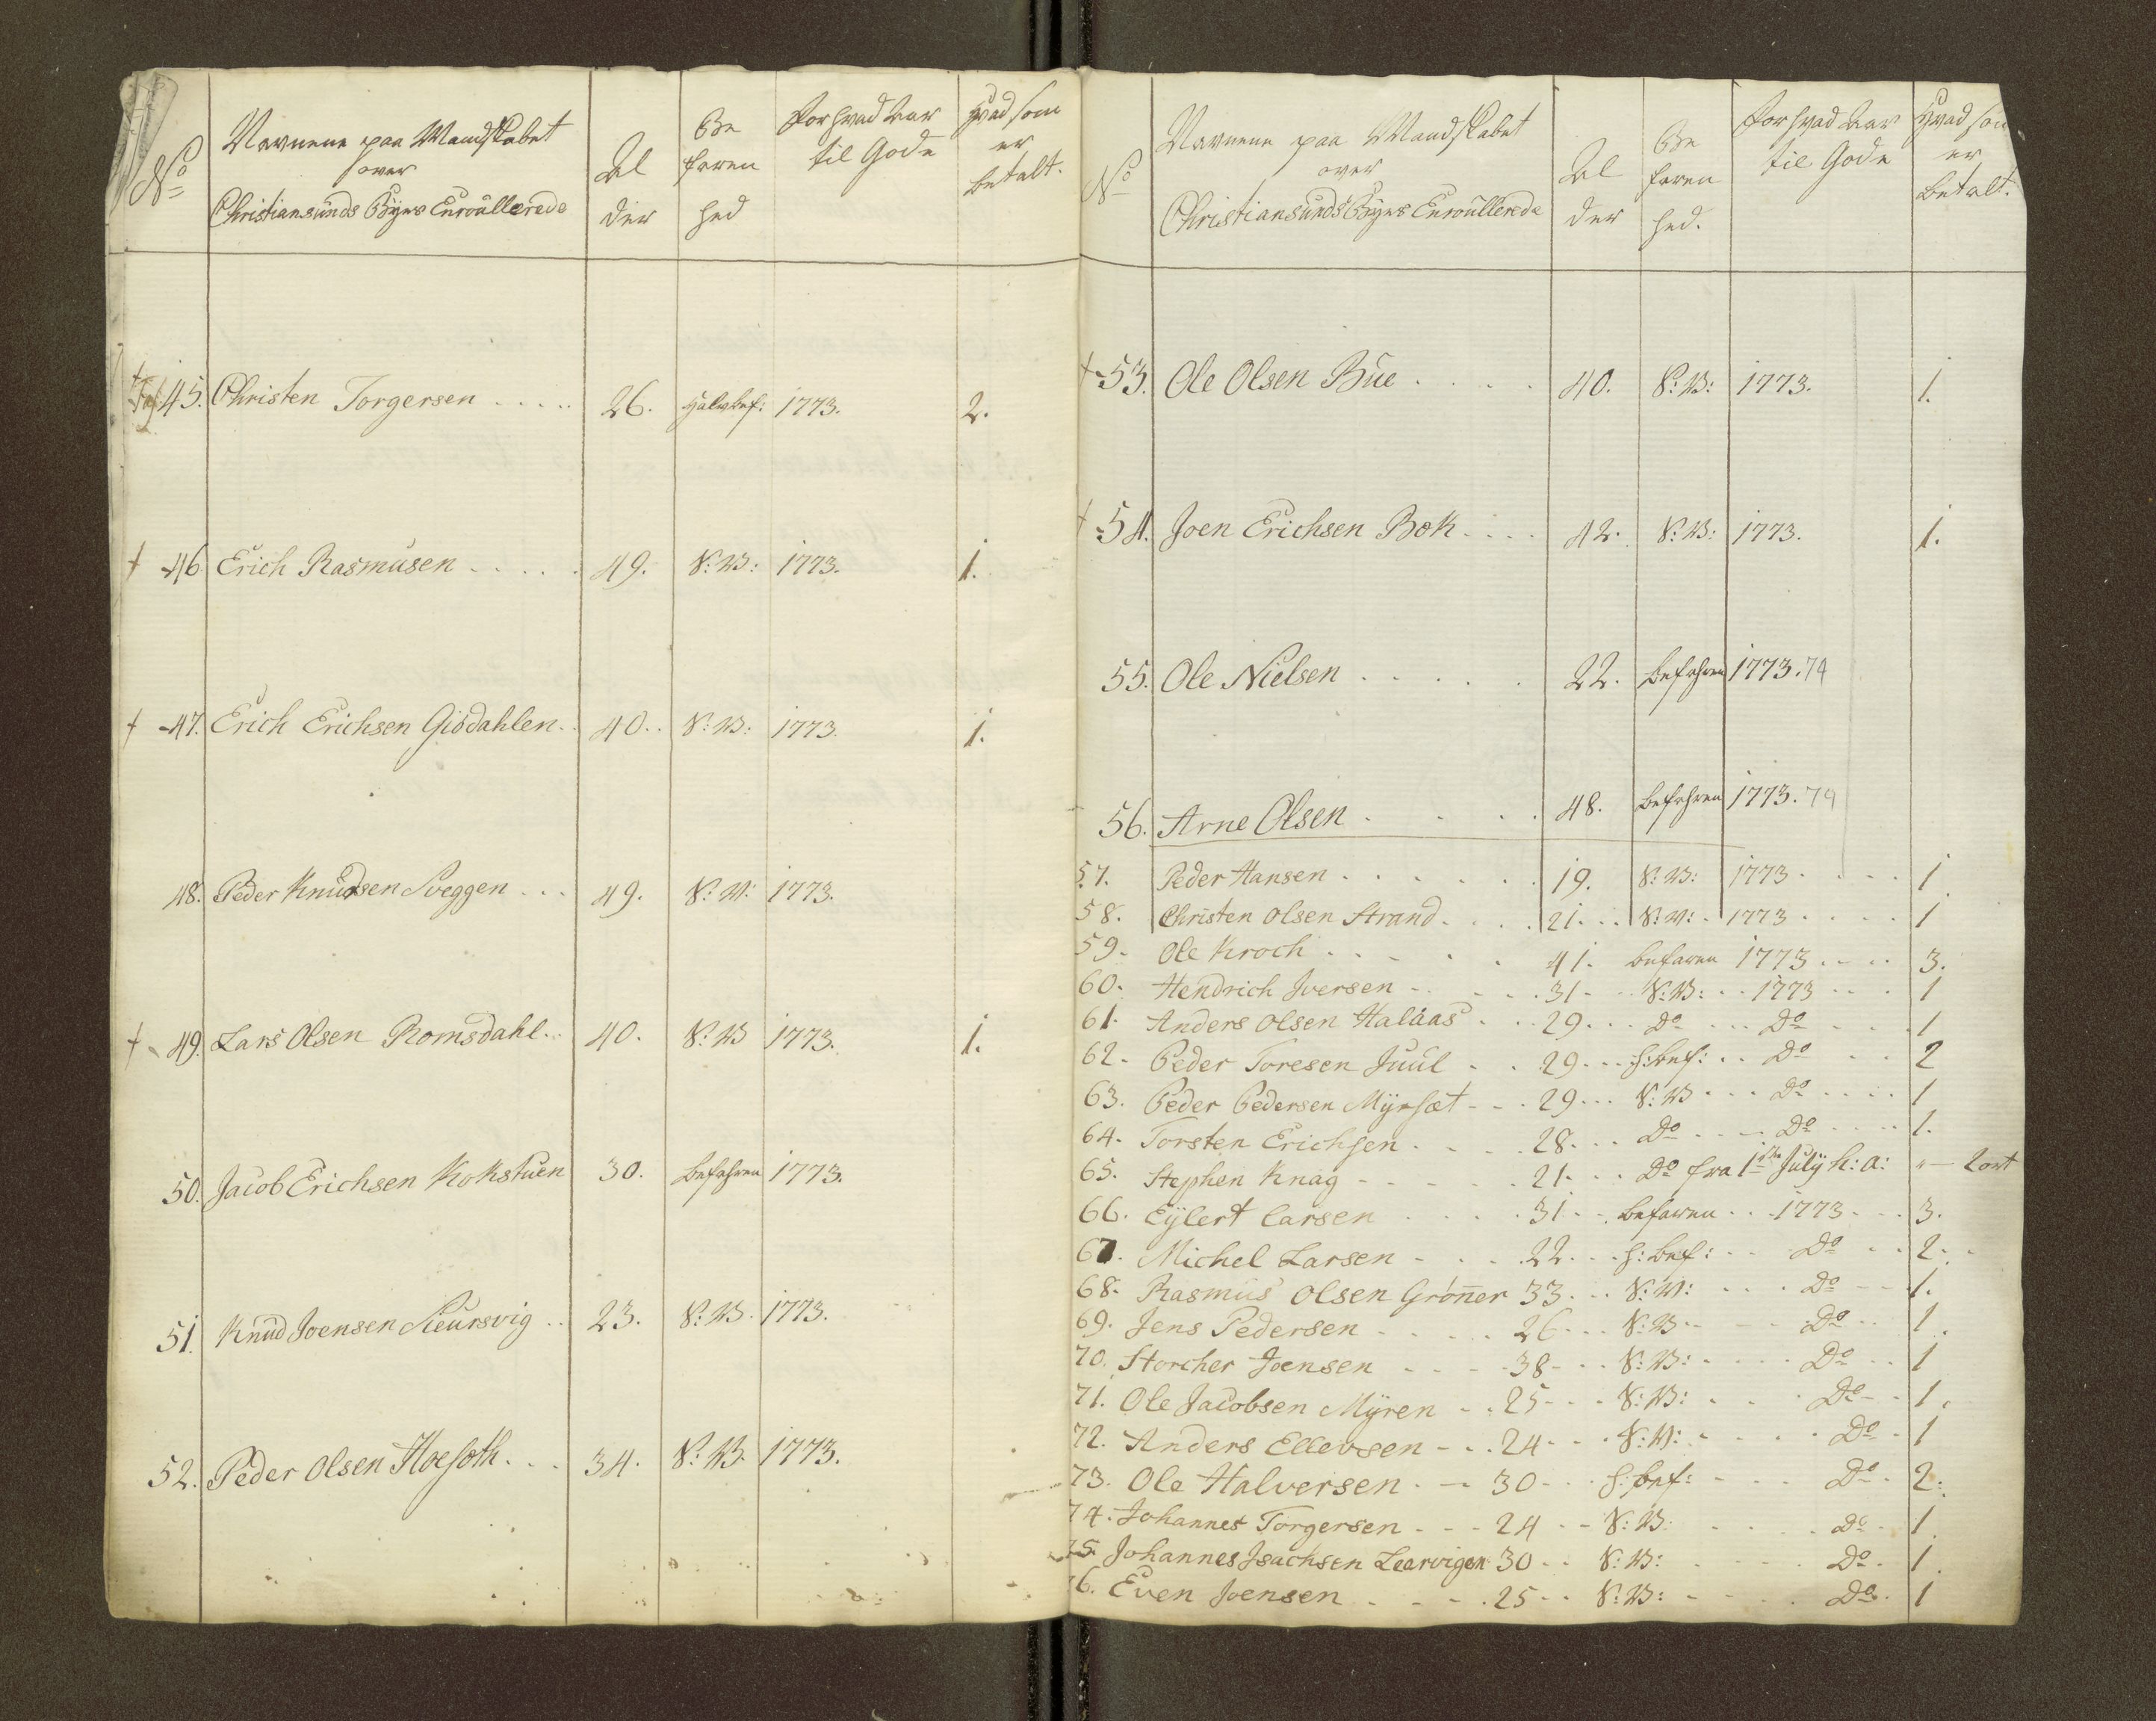 No
Navnene paa Mandskabet
over
Christiansunds Byes Enroullerede
Al
der
Be
faren
hed
For hvad Aar
til Gode
Hvad som
er
betalt.
45. Christen Torgersen ..... 26. Halvbef: 1773. 2.
† 46 Erich Rasmusen ..... 49. S: V: 1773. 1.
† 47. Erich Erichsen Giødahlen .. 40.. S: V: 1773. 1.
48. Peder Knudsen Sveggen ... 49. S: V: 1773.
† 49. Lars Olsen Romsdahl .. 40. S: V 1773. 1.
50. Jacob Erichsen Kokstuen 30. befahren 1773.
51. Knud Joensen Sieursvig .. 23. S: V. 1773.
52. Peder Olsen Hoesoth ... 34. S: V. 1773.
No
Navnene paa Mandskabet
over
Christiansunds Byes Enroullerede
Al
der
Be
faren
hed.
For hvad Aar
til Gode
Hvad som
er
betalt.
† 53. Ole Olsen Bue .... 40. S: V: 1773. 1.
† 54. Joen Erichsen Bok .... 42. S: V: 1773. 1.
55. Ole Nielsen ..... 22. befahren 1773. 74
56. Arne Olsen .... 48. befahren 1773. 74
57. Peder Hansen ...... 19. S: V: 1773 .... 1
58. Christen Olsen Strand .... 21... S: V: . 1773 .... 1
59. Ole Kroch ..... 41. befaren 1773 .... 3.
60. Hendrich Iversen .... 31.. S: V: .. 1773 ... 1
61. Anders Olsen Halaas ... 29... Do ... Do .... 1
62. Peder Toresen Juul .. 29... h: bef: .. Do .. 2
63. Peder Pedersen Myrsæt ... 29... S: V ... Do .... 1
64. Torsten Erichsen .... 28... Do .... Do .... 1.
65. Stephen Knag ..... 21... Do fra 1ste July h: a: "— 2 ort
66. Eylert Larsen .... 31.. befaren ... 1773 ... 3.
67. Michel Larsen .... 22... h: bef: ... Do .. 2..
68. Rasmus Olsen Grøn̄er 33... S: V: .... Do .. 1.
69. Jens Pedersen ..... 26... S: V. ... Do .. 1.
70. Storcher Joensen .... 38... S: V: .... Do .. 1
71. Ole Jacobsen Myren .. 25... S: V: ... Do .. 1.
72. Anders Ellevsen ... 24... S: V: .... Do . 1
73. Ole Halversen .. 30... h: bef: .... Do . 2.
74. Johannes Torgersen ... 24 .. S: V: .... Do . 1.
75. Johannes Isachsen Leervigen 30 .. S: V: .... Do . 1.
76. Even Joensen .... 25 .. S: V: .... Do . 1